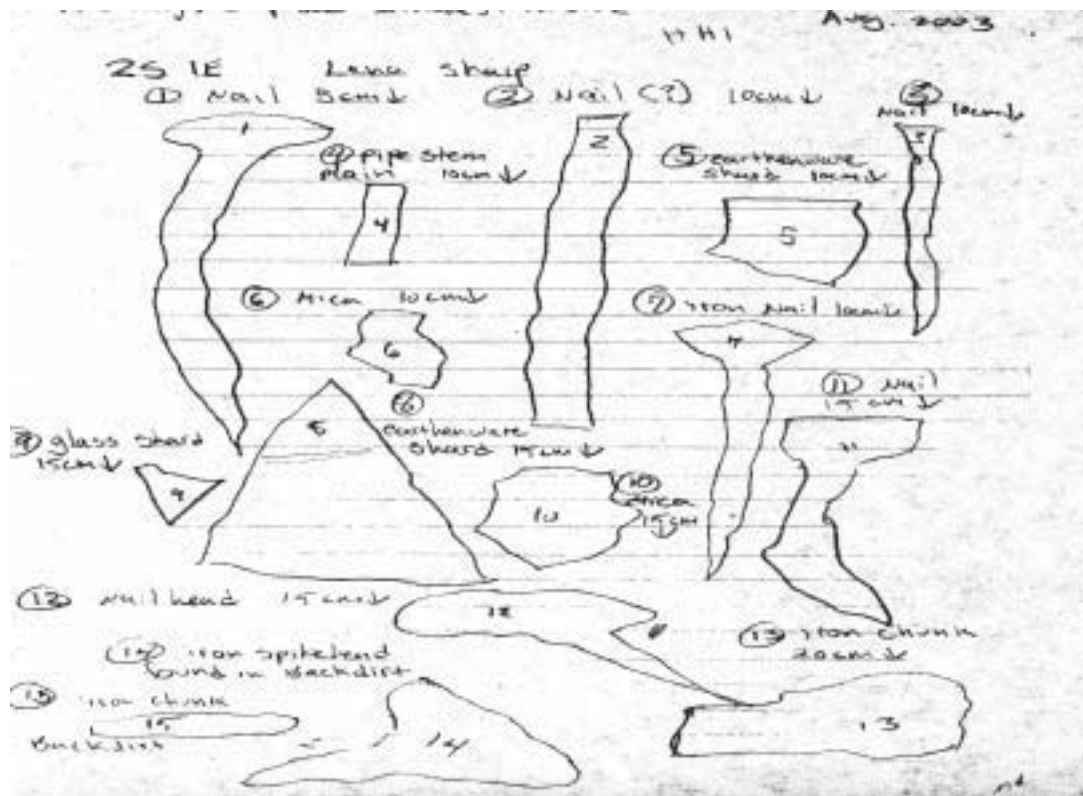 Aug. 2003
HHI
2S 1E Lena Sharp
① Nail 5cm↓ ② Nail (?) 10cm↓ ③ Nail 10cm↓
1
2
3
④ pipe stem
plain 10cm↓
4
⑤ earthenware
shard 10cm↓
5
⑥ Mica 10cm↓
6
⑦ iron nail 10cm↓
7
⑧
earthenware
shard 15cm↓
8
⑨ glass shard
15cm↓
9
⑩
Mica
15cm
↓
10
⑪ Nail
15cm↓
11
⑫ nail head 15cm↓
12
⑬ iron chunk
20cm↓
13
⑭ iron spikehead
found in Backdirt
14
⑮ iron chunk
15
Backdirt